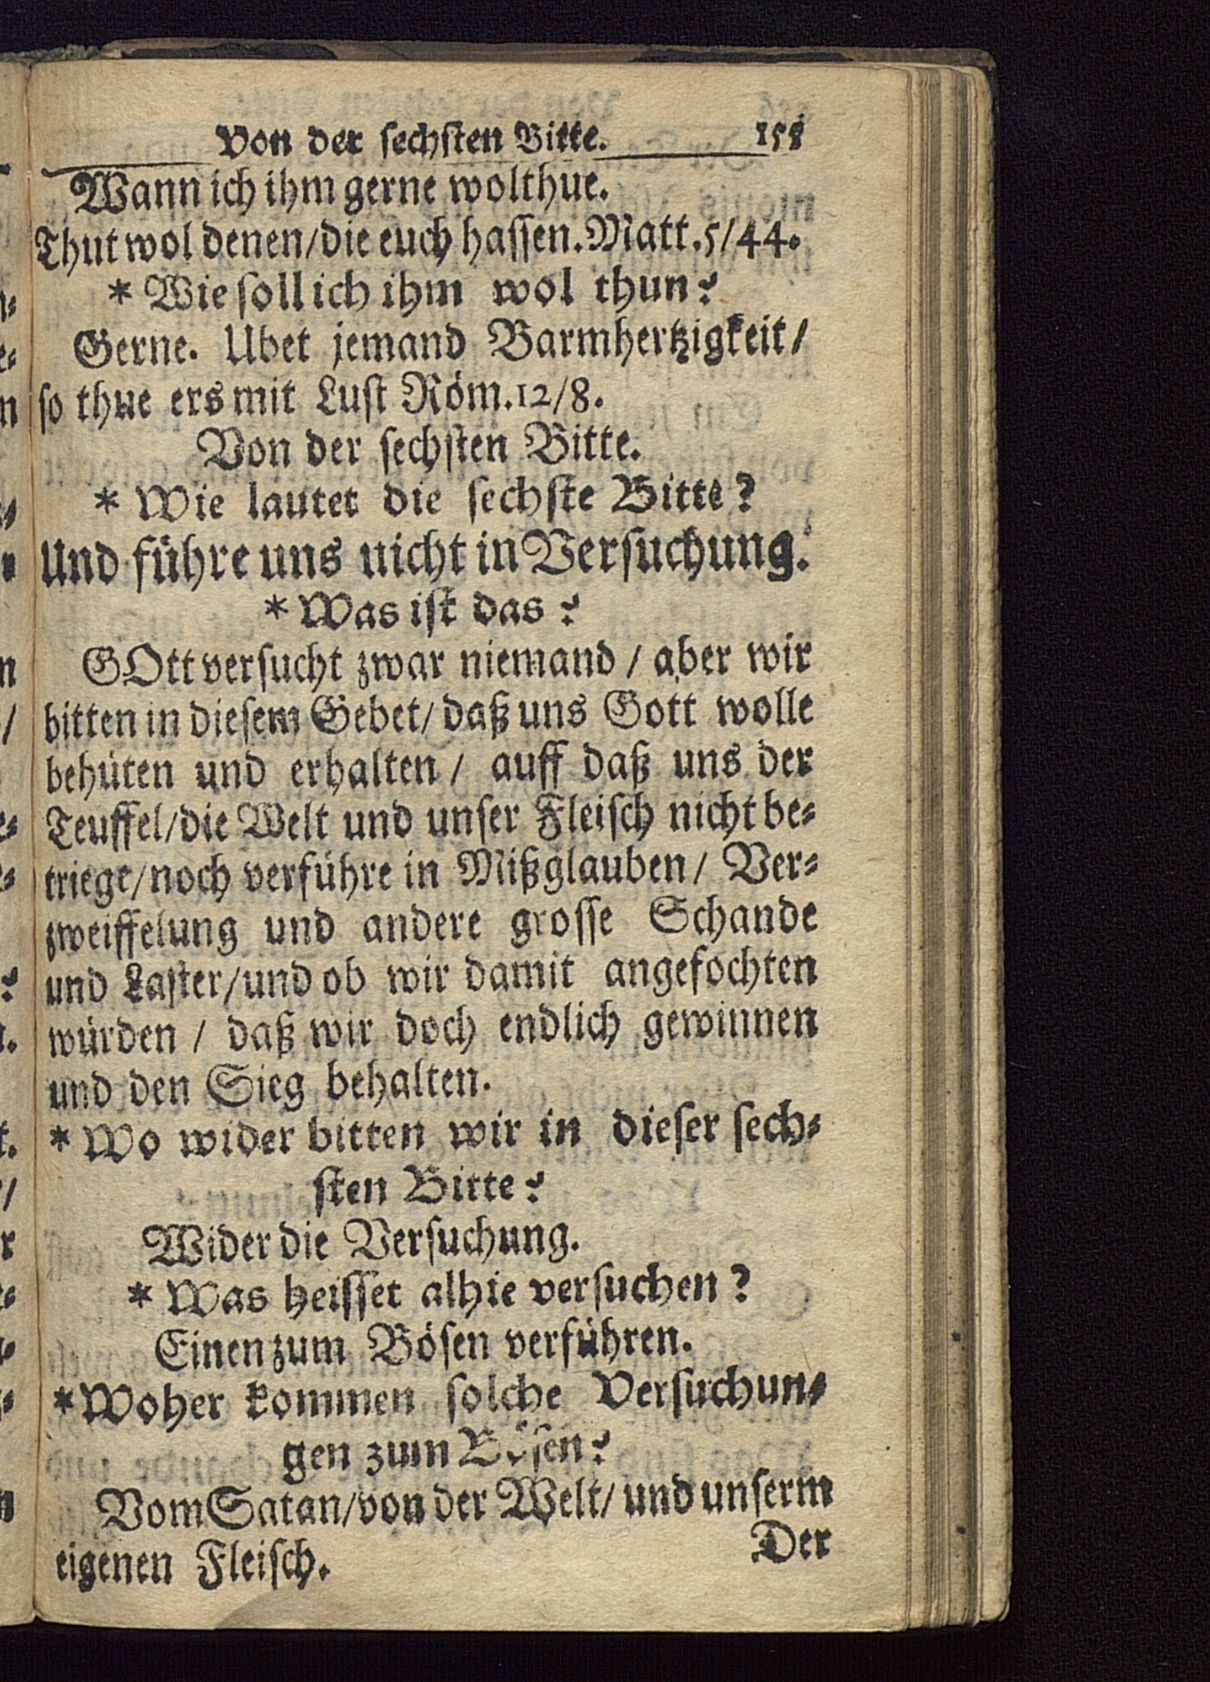 Von der sechsten Bitte. 158
Wann ich ihm gerne wolthue.
Thut wol denen/die euch hassen. Matt. 5/44.
* Wie soll ich ihm wol thun?
Gerne. Ubet jemand Barmhertzigkeit/
so thue ers mit Lust Röm. 12/8.
Von der sechsten Bitte.
* Wie lautet die sechste Bitte?
Und führe uns nicht in Versuchung.
* Was ist das?
GOtt versucht zwar niemand / aber wir
bitten in diesem Gebet/ daß uns Gott wolle
behüten und erhalten / auff daß uns der
Teuffel/die Welt und unser Fleisch nicht be-
triege/noch verführe in Mißglauben/ Ver-
zweiffelung und andere grosse Schande
und Laster/und ob wir damit angefochten
würden / daß wir doch endlich gewinnen
und den Sieg behalten.
* Wo wider bitten wir in dieser sech-
sten Bitte?
Wider die Versuchung.
* Was heisset alhie versuchen?
Einen zum Bösen verführen.
* Woher kommen solche Versuchun-
gen zum Bösen?
Vom Satan/von der Welt/ und unserm
eigenen Fleisch.
Der